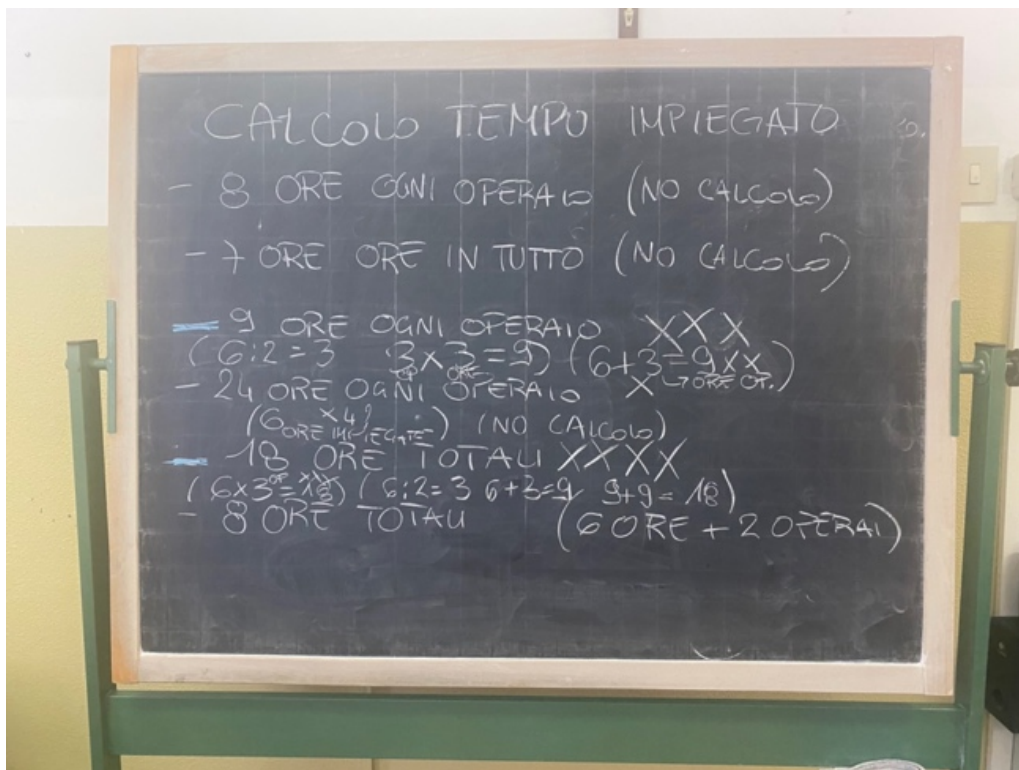 CALCOLO TEMPO IMPIEGATO
- 8 ORE OGNI OPERAIO (NO CALCOLO)
- 7 ORE ORE IN TUTTO (NO CALCOLO)
- 9 ORE OGNI OPERAIO XXX
(6:2=3 3x3=9) (6+3=9XX)
OP ORE → ORE OP.
- 24 ORE OGNI OPERAIO X
(6 x4) (NO CALCOLO)
ORE IMPIEGATE
- 18 ORE TOTALI XXXX
(6x3=18) (6:2=3 6+3=9 9+9=18)
- 8 ORE TOTALI (6 ORE + 2 OPERAI)